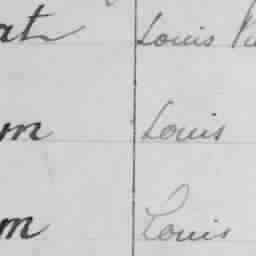 at Louis
m Louis
m Louis